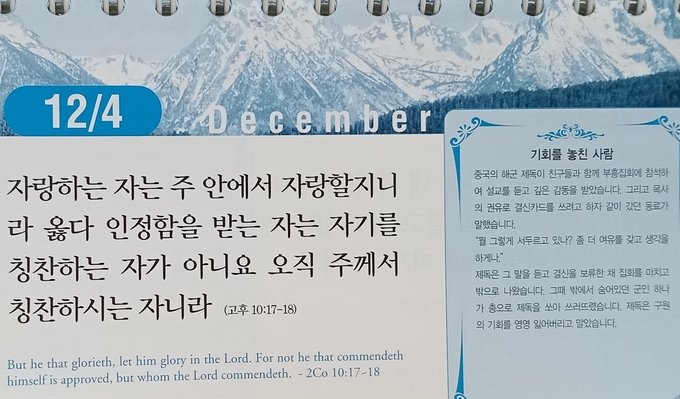 12/4
December
자랑하는 자는 주 안에서 자랑할지니
라 옳다 인정함을 받는 자는 자기를
칭찬하는 자가 아니요 오직 주께서
칭찬하시는 자니라 (고후 10:17-18)
But he that glorieth, let him glory in the Lord. For not he that commendeth
himself is approved, but whom the Lord commendeth. - 2Co 10:17-18
기회를 놓친 사람
중국의 해군 제독이 친구들과 함께 부흥집회에 참석하
여 설교를 듣고 깊은 감동을 받았습니다. 그리고 목사
의 권유로 결신카드를 쓰려고 하자 같이 갔던 동료가
말했습니다.
"뭘 그렇게 서두르고 있나? 좀 더 여유를 갖고 생각을
하게나."
제독은 그 말을 듣고 결신을 보류한 채 집회를 마치고
밖으로 나왔습니다. 그때 밖에서 숨어있던 군인 하나
가 총으로 제독을 쏘아 쓰러뜨렸습니다. 제독은 구원
의 기회를 영영 잃어버리고 말았습니다.